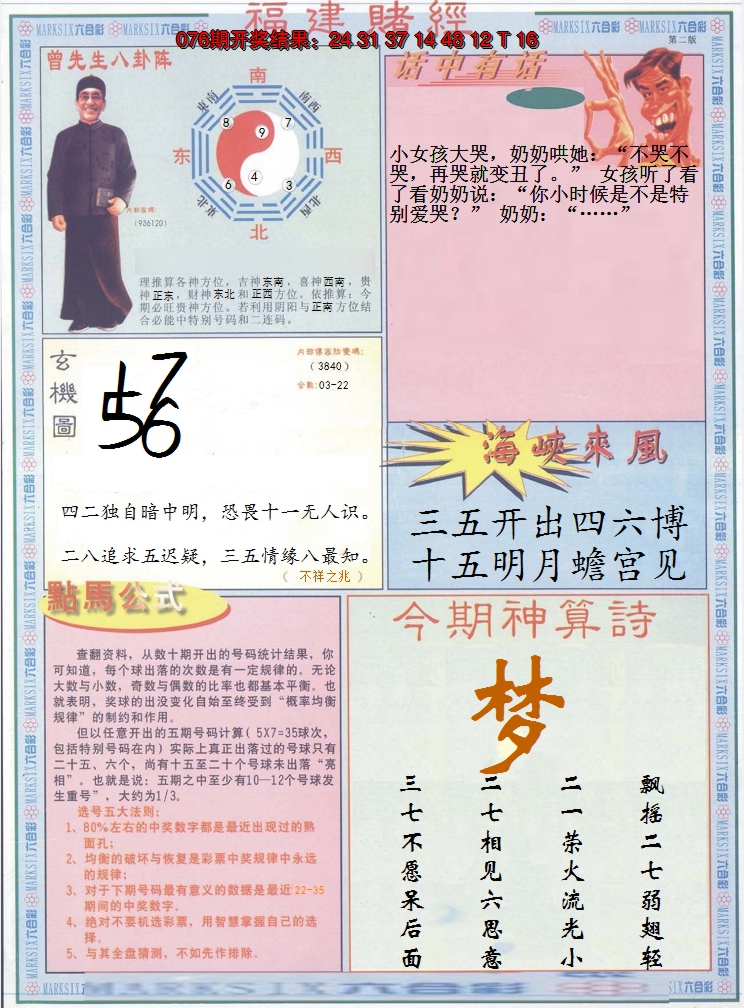 福建賭經
076期开奖结果：24 31 37 14 48 12 T 16
MARKSIX六合彩
第二版
曾先生八卦阵
南
东南
南西
东
西
8
9
7
6
4
3
北西
北
内部密碼:
(936120)
理推算各神方位，吉神东南，喜神西南，贵
神正东，财神东北和正西方位。依推算：今
期必旺贵神方位。若利用阴阳与正南方位结
合必能中特别号码和二连码。
话中有话
小女孩大哭，奶奶哄她：“不哭不
哭，再哭就变丑了。” 女孩听了看
了看奶奶说：“你小时候是不是特
别爱哭？” 奶奶：“……”
玄機圖
内部傳密防變碼:
(3840)
合數:03-22
56
四二独自暗中明，恐畏十一无人识。
二八追求五迟疑，三五情缘八最知。
( 不祥之兆 )
海峽來風
三五开出四六博
十五明月蟾宫见
點馬公式
查翻资料，从数十期开出的号码统计结果，你
可知道，每个球出落的次数是有一定规律的。无论
大数与小数，奇数与偶数的比率也都基本平衡。也
就表明，奖球的出没变化自始至终受到“概率均衡
规律”的制约和作用。
但以任意开出的五期号码计算( 5X7=35球次，
包括特别号码在内) 实际上真正出落过的号球只有
二十五、六个，尚有十五至二十个号球未出落“亮
相”。也就是说：五期之中至少有10—12个号球发
生重号”，大约为1/3。
选号五大法则：
1、80%左右的中奖数字都是最近出现过的熟
面孔；
2、均衡的破坏与恢复是彩票中奖规律中永远
的规律；
3、对于下期号码最有意义的数据是最近22-35
期间的中奖数字。
4、绝对不要机选彩票，用智慧掌握自己的选
择。
5、与其全盘猜测，不如先作排除。
今期神算詩
梦
飘摇二七弱翅轻
二一荣火流光小
二七相见六思意
三七不愿呆后面